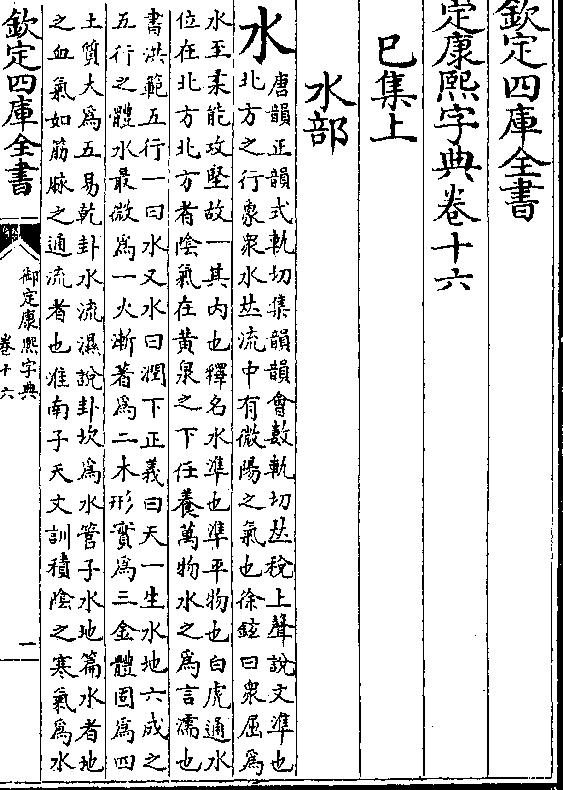 欽定四庫全書
定康熙字典卷十六
巳集上
水部
水
唐韻正韻式軌切集韻韻會數軌切𠀤稅上聲說文準也
北方之行象衆水𠀤流中有微陽之氣也徐鉉曰衆屈爲
水至柔能攻堅故一其內也釋名水準也準平物也白虎通水
位在北方北方者陰氣在黃泉之下任養萬物水之爲言濡也
書洪範五行一曰水又水曰潤下正義曰天一生水地六成之
五行之體水最微爲一火漸著爲二木形實爲三金體固爲四
土質大爲五易乾卦水流濕說卦坎爲水管子水地篇水者地
之血氣如筋脉之通流者也淮南子天文訓積陰之寒氣爲水
欽定四庫全書
御定康熙字典
卷十六
一